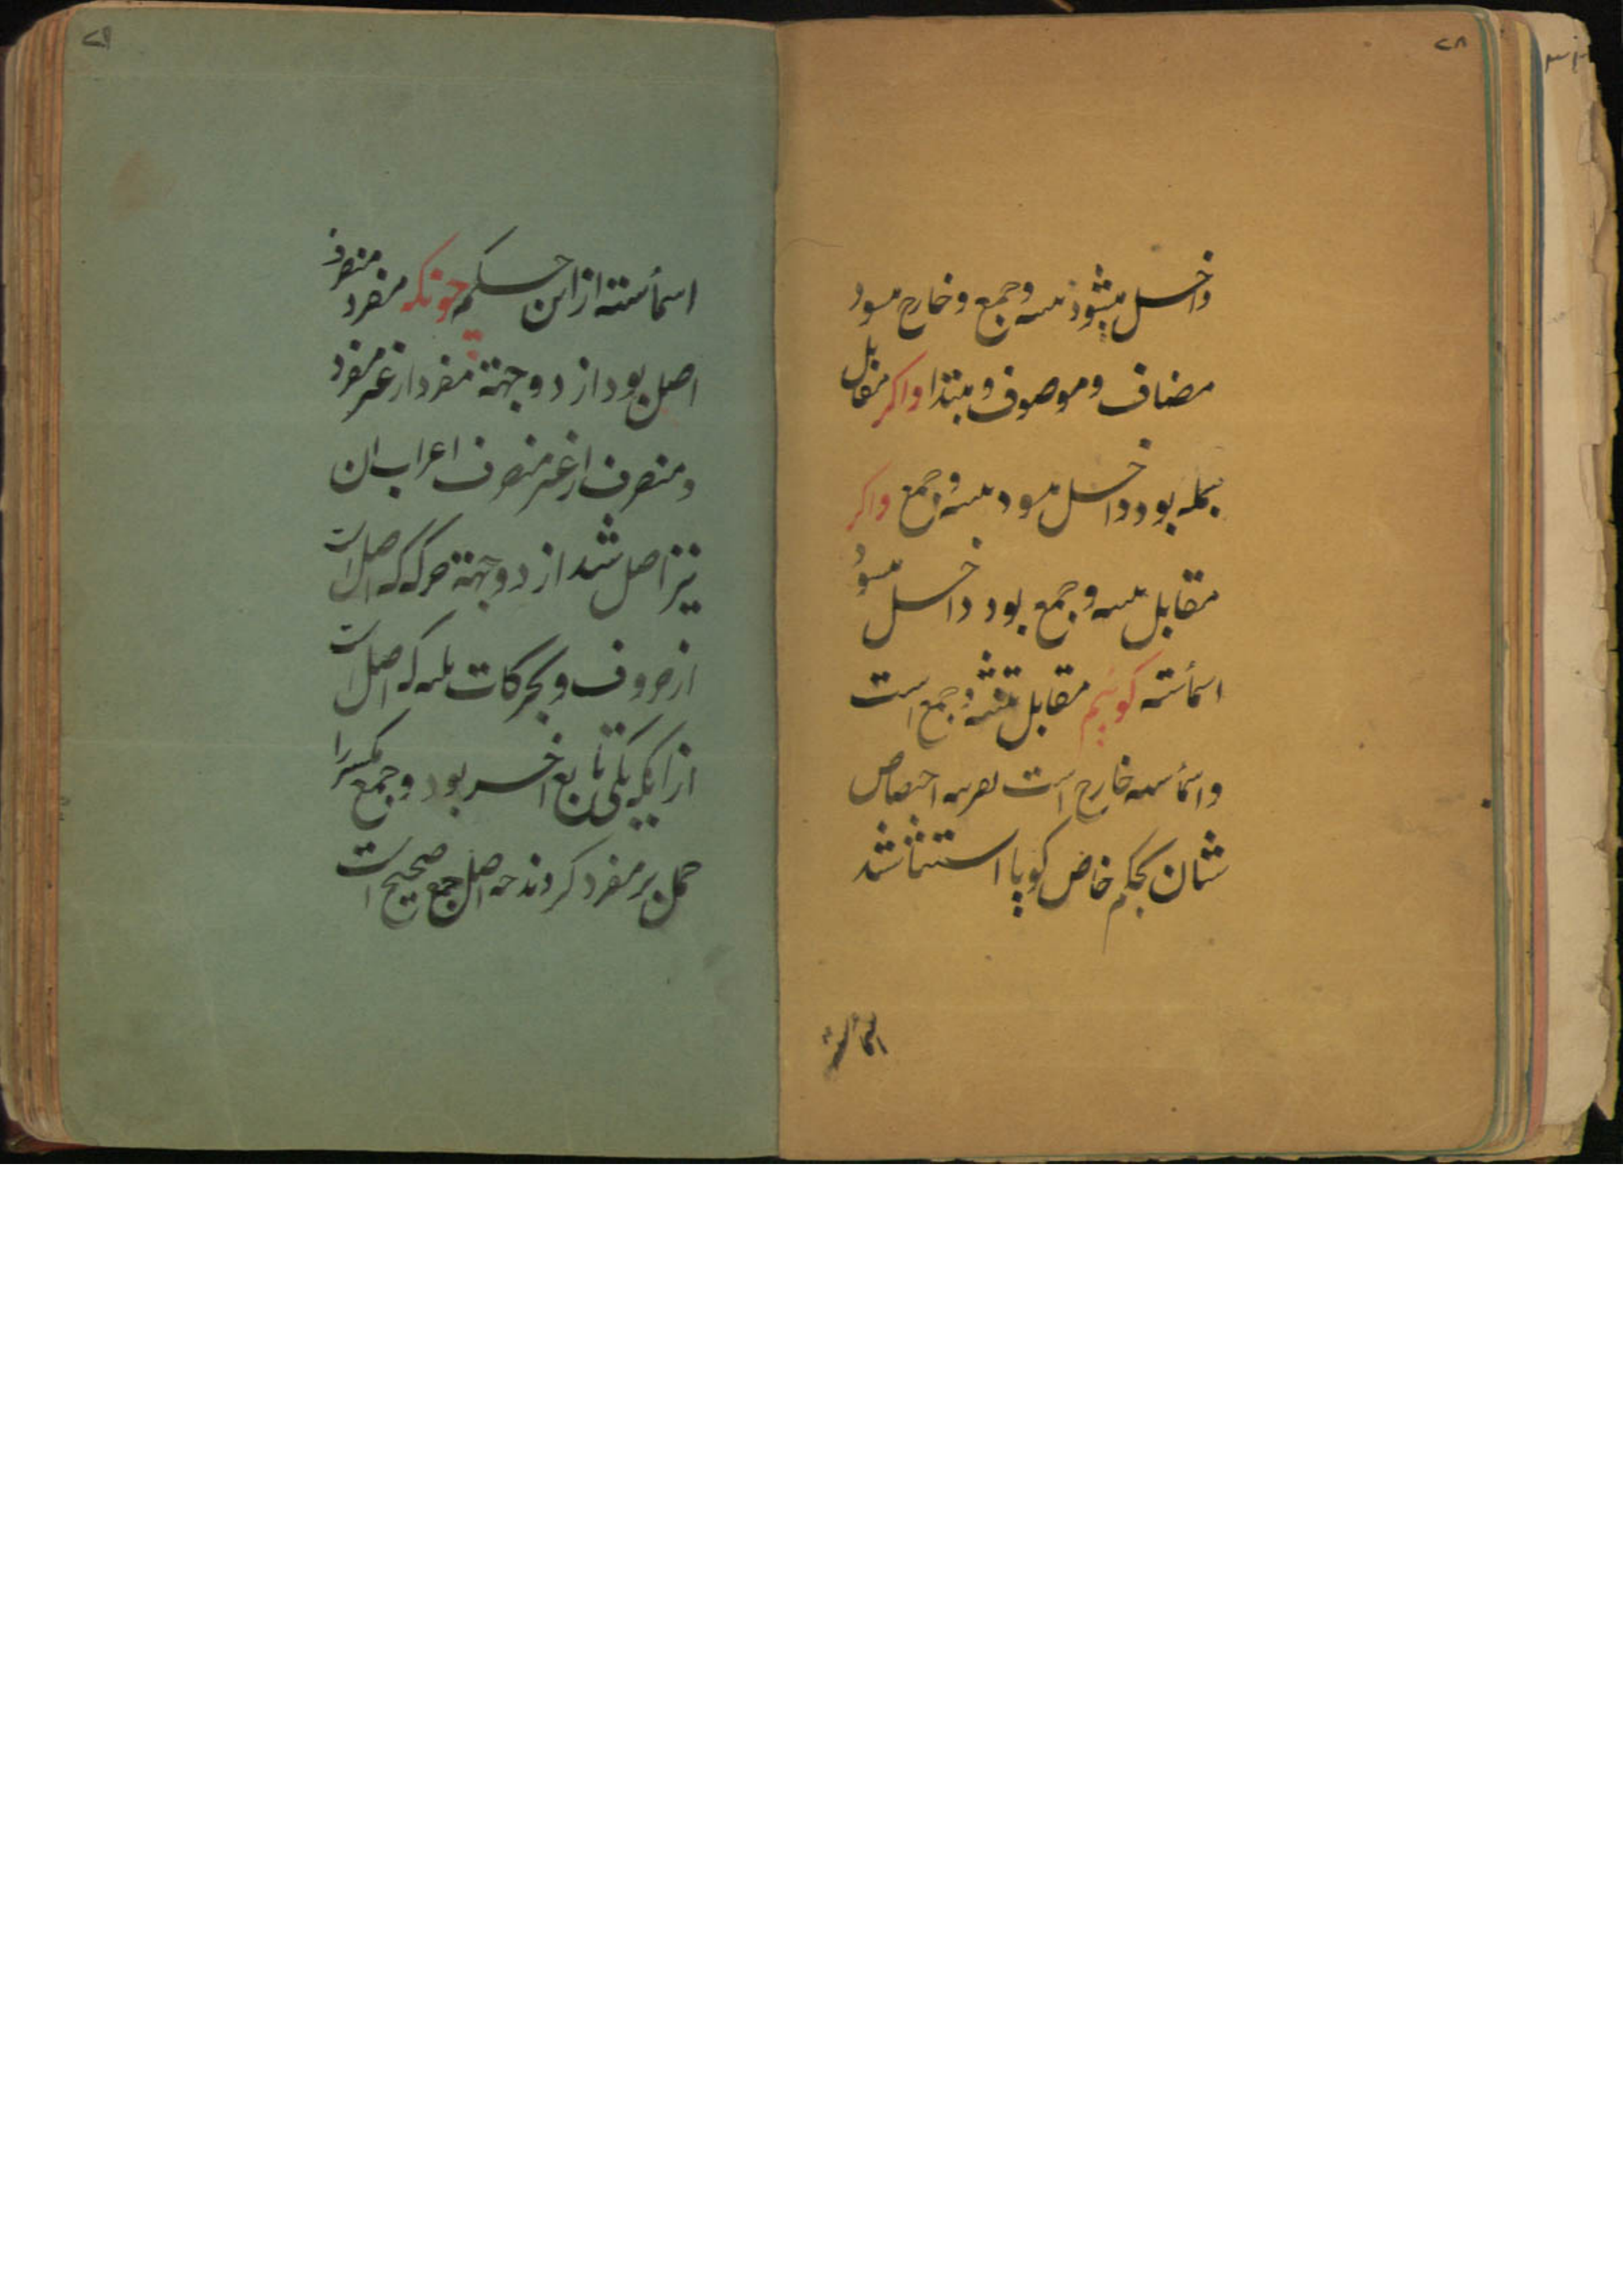 ۲۸
داخل میشود تثنیه و جمع و خارج میشود
مضاف و موصوف و مبتدا و اکر مقابل
جمله بود داخل میشود تثنیه و جمع و اکر
مقابل تثنیه و جمع بود داخل میشود
اسمأ ستّه کوئیم مقابل تثنیه و جمع است
و اسمأ سته خارج است بقرینه اختصاص
شان بحکم خاص کویا استثنا شد
اسمأ سته
۲۹
اسمأ سته از این حکم چونکه مفرد منصرف
اصل بود از دو جهة مفرد از غیر مفرد
و منصرف از غیر منصرف اعراب ان
نیز اصل شد از دو جهة حرکه که اصل است
از حروف و بحرکات ثلثه که اصل است
از اینکه یکی تابع اخر بود و جمع مکسر را
حمل بر مفرد کردند چه اصل جمع صحیح است